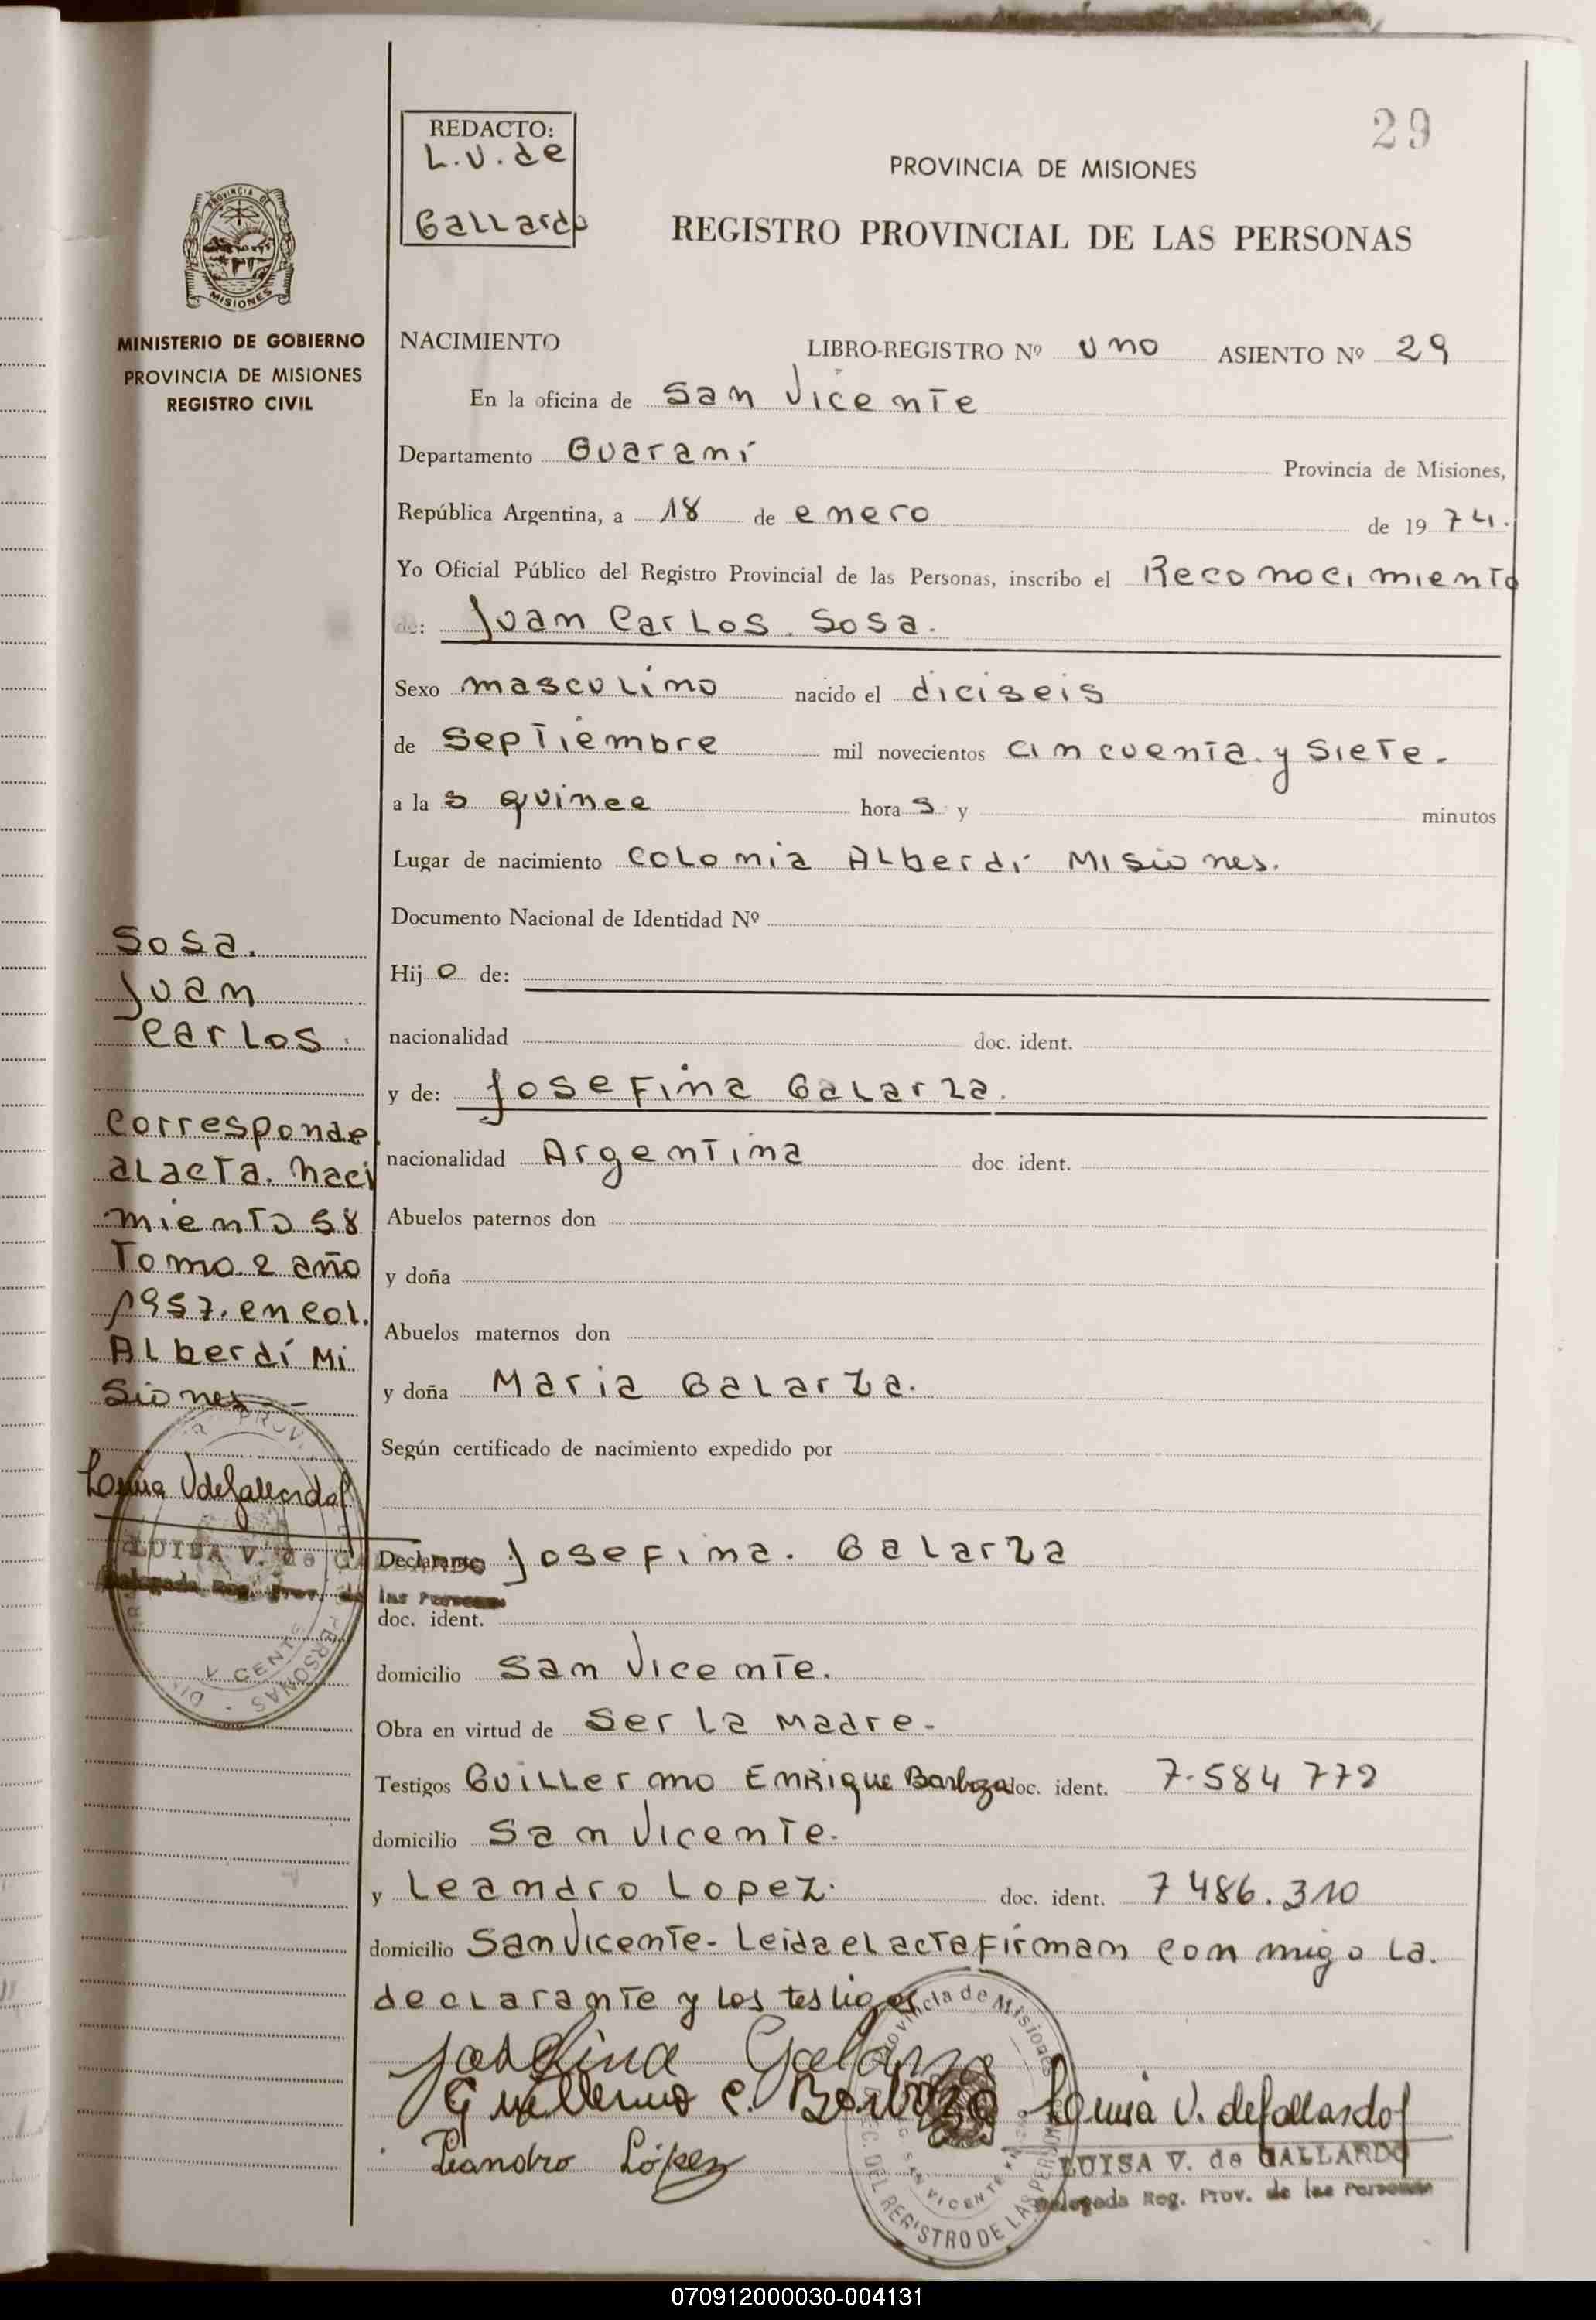 29
REDACTO:
L.V. de
Gallardo
PROVINCIA DE MISIONES
REGISTRO PROVINCIAL DE LAS PERSONAS
PROVINCIA DE
MISIONES
MINISTERIO DE GOBIERNO
PROVINCIA DE MISIONES
REGISTRO CIVIL
NACIMIENTO LIBRO-REGISTRO Nº uno ASIENTO Nº 29
En la oficina de San Vicente
Departamento Guaraní Provincia de Misiones,
República Argentina, a 18 de enero de 1974.
Yo Oficial Público del Registro Provincial de las Personas, inscribo el Reconocimiento
de: Juan Carlos Sosa.
Sexo masculino nacido el diciseis
de Septiembre mil novecientos cincuenta y siete.
a la s quince hora s y minutos
Lugar de nacimiento Colonia Alberdi Misiones.
Documento Nacional de Identidad Nº
Hij o de:
nacionalidad doc. ident.
y de: Josefina Galarza.
nacionalidad Argentina doc ident.
Abuelos paternos don
y doña
Abuelos maternos don
y doña Maria Galarza.
Según certificado de nacimiento expedido por
Declarante Josefina Galarza
doc. ident.
domicilio San Vicente.
Obra en virtud de ser la madre.
Testigos Guillermo Enrique Barboza doc. ident. 7.584 772
domicilio San Vicente.
y Leandro Lopez. doc. ident. 7 486.310
domicilio San Vicente - Leida el acta firman conmigo la
declarante y los testigos
Josefina Galarza
Guillermo E. Barboza
Leandro López
Luisa V. de Gallardo
LUISA V. de GALLARDO
Delegada Reg. Prov. de las Personas
Provincia de Misiones
DEL REGISTRO DE LAS PERSONAS
SAN VICENTE
Sosa.
Juan
Carlos.
Corresponde
al acta. naci
miento 58
Tomo 2 año
1957. en col.
Alberdí Mi
siones
Luisa V de Gallardo
LUISA V. de GALLARDO
Delegada Reg. Prov. de las Personas
070912000030-004131